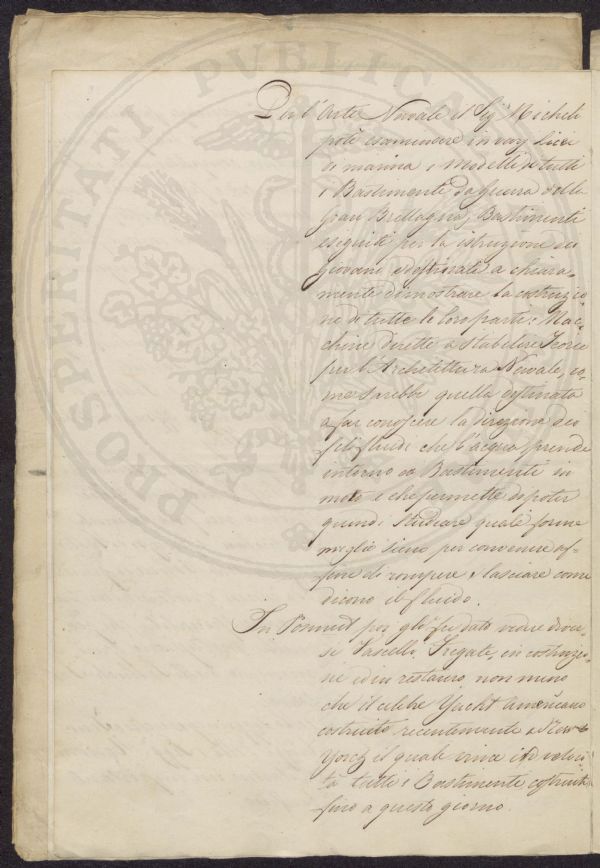 PROSPERITATI PUBLICAE
Per l'Arte Navale il Sig Micheli
potè esaminare in vary Licei
di marina i Modelli di tutti
i Bastimenti da Guerra della
Gran Brettagna; Bastimenti
eseguiti per la istruzione dei
giovani e destinati a chiara-
mente dimostrare la costruzio-
ne di tutte le loro parti: Mac-
chine dirette a stabilire Teorie
per l'Architettura Navale, co-
me sarebbe quella destinata
a far conoscere la direzione dei
fili fluidi che l'acqua prende
intorno ai Bastimenti in
moto e che permette di poter
quindi studiare quale forme
meglio sieno per convenire af-
fine di rompere e lasciare come
dicono il fluido.
In poi gli fu dato vedere diver-
si Vascelli, Fregate, in costruzio-
ne ed in restauro, non meno
che il celebre Yacht americano
costruito recentemente a New-
York il quale vince in veloci-
tà tutti i Bastimenti costruiti
fino a questo giorno.